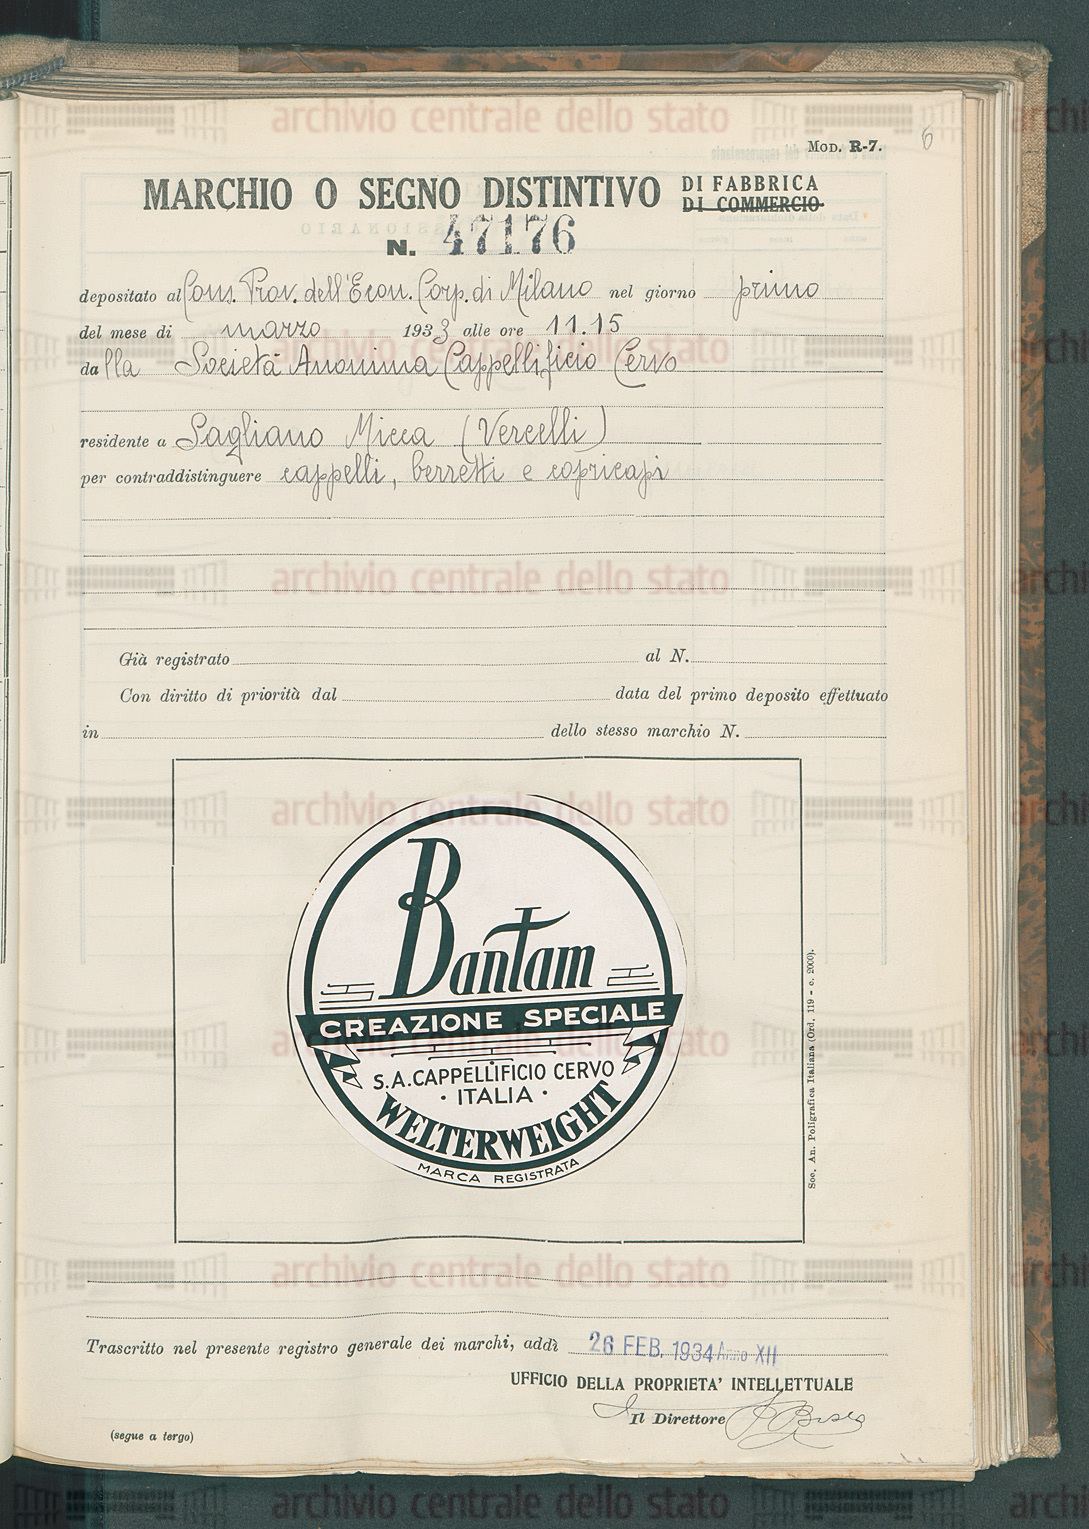 archivio centrale dello stato
MOD. R-7.
6
MARCHIO O SEGNO DISTINTIVO DI FABBRICA
DI COMMERCIO
N. 47176
depositato al Cons. Prov. dell'Econ. Corp. di Milano nel giorno primo
del mese di marzo 1933 alle ore 11.15
dalla Società Anonima Cappellificio Cervo
residente a Sagliano Micca (Vercelli)
per contraddistinguere cappelli, berretti e copricapi
archivio centrale dello stato
Già registrato al N.
Con diritto di priorità dal data del primo deposito effettuato
in dello stesso marchio N.
archivio centrale dello stato
Bantam
CREAZIONE SPECIALE
archivio centrale dello stato
S.A. CAPPELLIFICIO CERVO
· ITALIA ·
WELTERWEIGHT
MARCA REGISTRATA
Soc. An. Poligrafica Italiana (Ord. 119 - c. 2000).
archivio centrale dello stato
Trascritto nel presente registro generale dei marchi, addì 26 FEB. 1934 Anno XII
UFFICIO DELLA PROPRIETA' INTELLETTUALE
Il Direttore
(segue a tergo)
archivio centrale dello stato